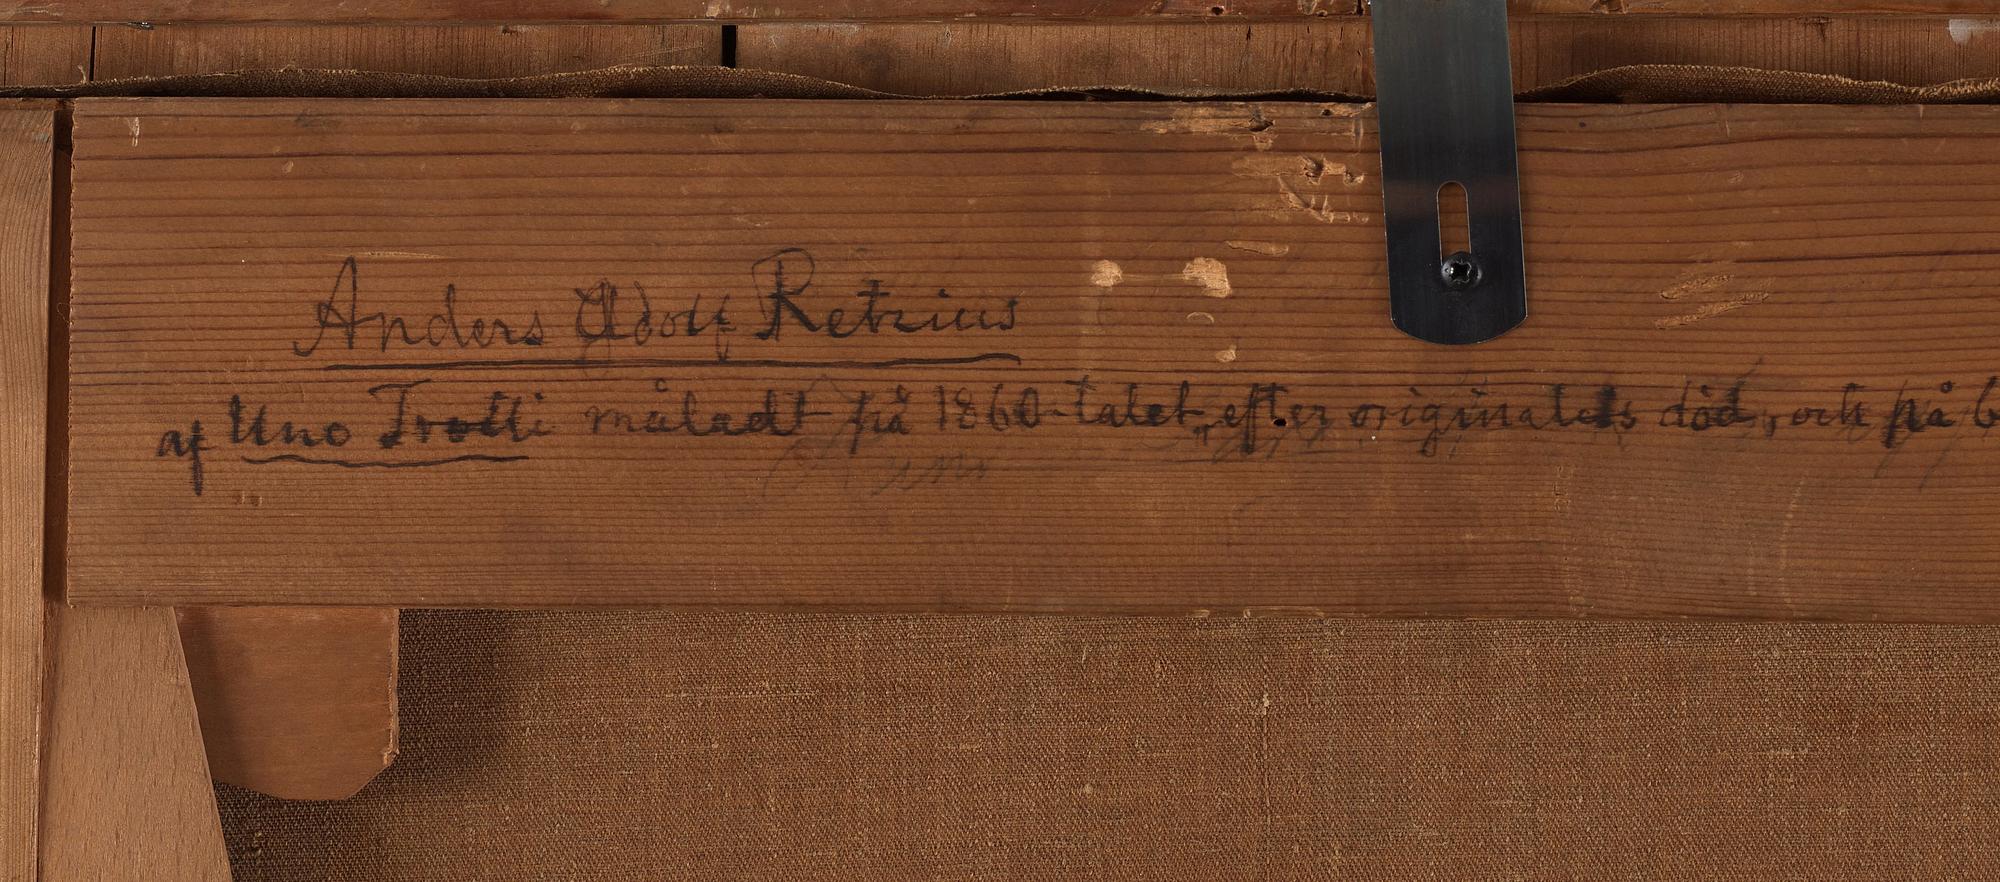 Anders Adolf Retzius
af Uno Trolli måladt på 1860-talet, efter originalets död, och på